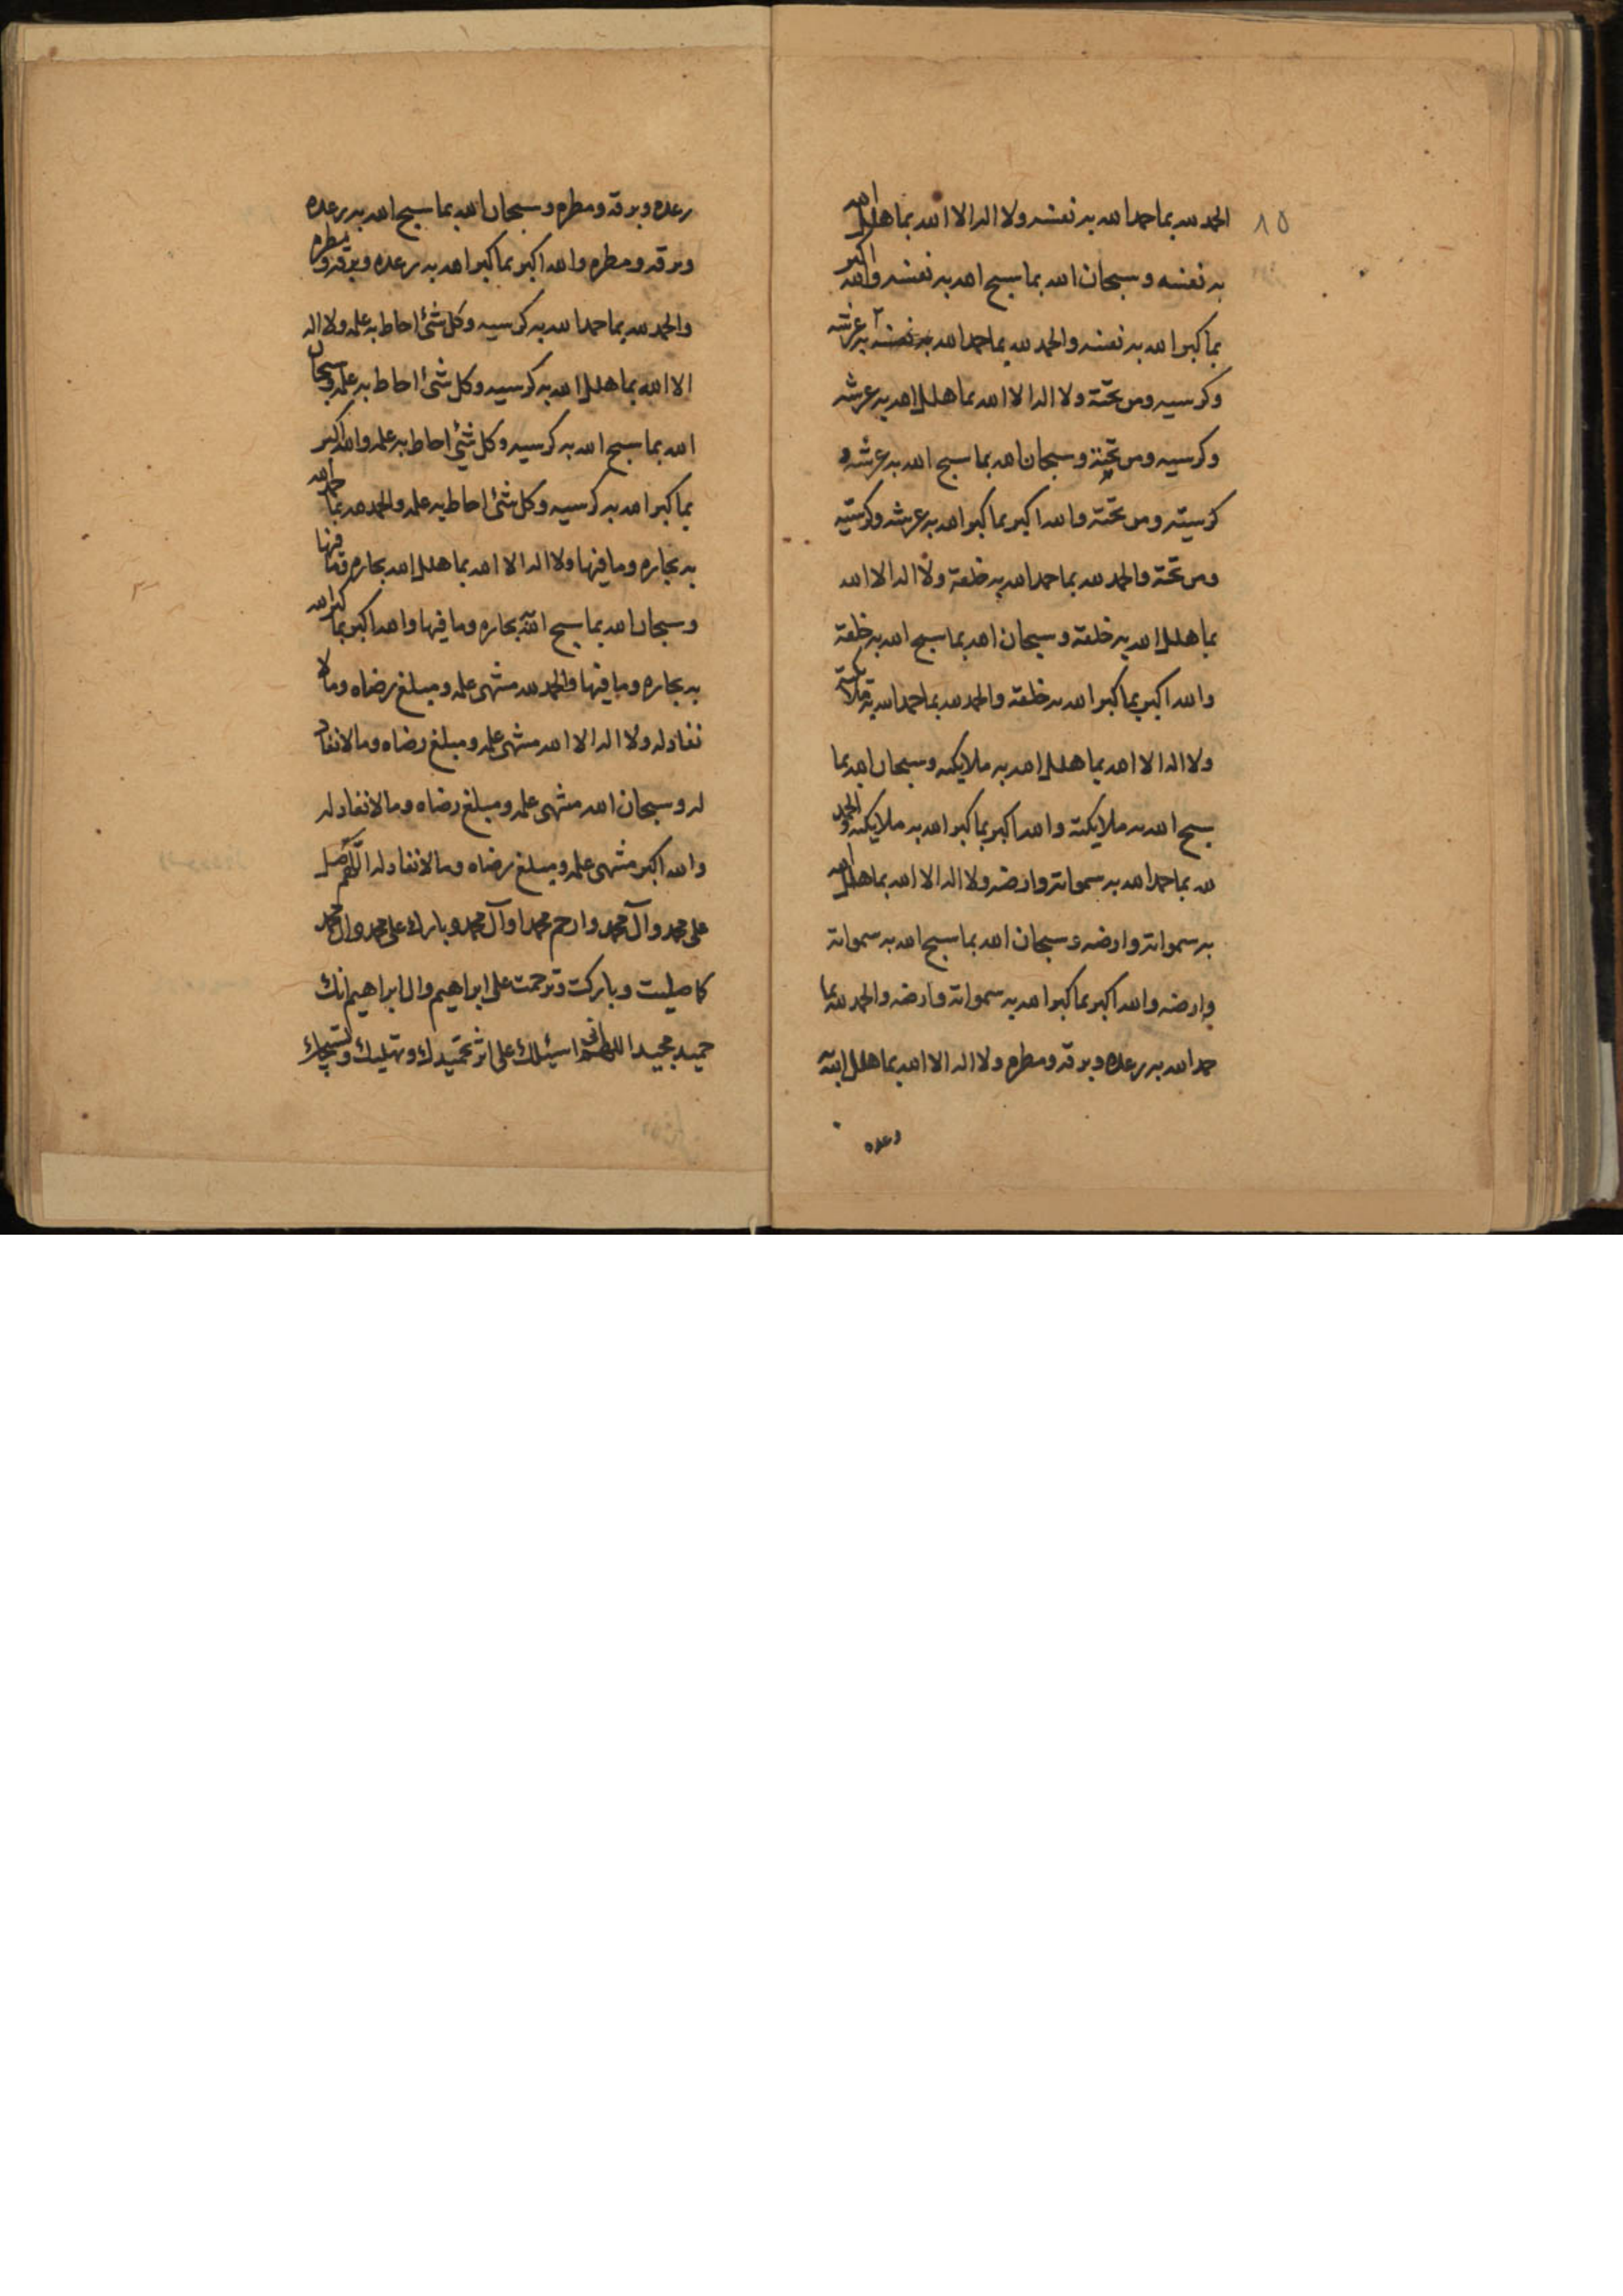 ٨٥
الحمد لله بما حمد الله به نفسه ولا اله الا الله بما هلل الله
به نفسه وسبحان الله بما سبح الله به نفسه والله اكبر
بما كبر الله به نفسه والحمد لله بما حمد الله به نفسه به عرشه
وكرسيه ومن تحته ولا اله الا الله بما هلل الله به عرشه
وكرسيه ومن تحته وسبحان الله بما سبح الله به عرشه و
كرسيه ومن تحته والله اكبر بما كبر الله به عرشه وكرسيه
ومن تحته والحمد لله بما حمد الله به خلقه ولا اله الا الله
بما هلل الله به خلقه وسبحان الله بما سبح الله به خلقه
والله اكبر بما كبر الله به خلقه والحمد لله بما حمد الله به ملائكته
ولا اله الا الله بما هلل الله به ملايكته وسبحان الله بما
سبح الله به ملايكته والله اكبر بما كبر الله به ملايكته والحمد
لله بما حمد الله به سمواته وارضه ولا اله الا الله بما هلل الله
به سمواته وارضه وسبحان الله بما سبح الله به سمواته
وارضه والله اكبر بما كبر الله به سمواته وارضه والحمد لله بما
حمد الله به رعده وبرقه ومطره ولا اله الا الله بما هلل الله به
رعده
رعده وبرقه ومطره وسبحان الله بما سبح الله به رعده
وبرقه ومطره والله اكبر بما كبر الله به رعده وبرقه ومطره
والحمد لله بما حمد الله به كرسيه وكل شئ احاط به علمه ولا اله
الا الله بما هلل الله به كرسيه وكل شئ احاط به علمه وسبحان
الله بما سبح الله به كرسيه وكل شئ احاط به علمه والله اكبر
بما كبر الله به كرسيه وكل شئ احاط به علمه والحمد لله بما حمد الله
به بحاره وما فيها ولا اله الا الله بما هلل الله بحاره وما فيها
وسبحان الله بما سبح الله به بحاره وما فيها والله اكبر بما كبر الله
به بحاره وما فيها والحمد لله منتهى علمه ومبلغ رضاه وما لا
نفاد له ولا اله الا الله منتهى علمه ومبلغ رضاه وما لا نفاد
له وسبحان الله منتهى علمه ومبلغ رضاه وما لا نفاد له
والله اكبر منتهى علمه ومبلغ رضاه وما لا نفاد له اللهم صل
على محمد وآل محمد وارحم محمدا وآل محمد وبارك على محمد وال محمد
كما صليت وباركت وترحمت على ابراهيم وال ابراهيم انك
حميد مجيد اللهم انى اسئلك على اثر تحميدك وتهليلك وتسبيحك